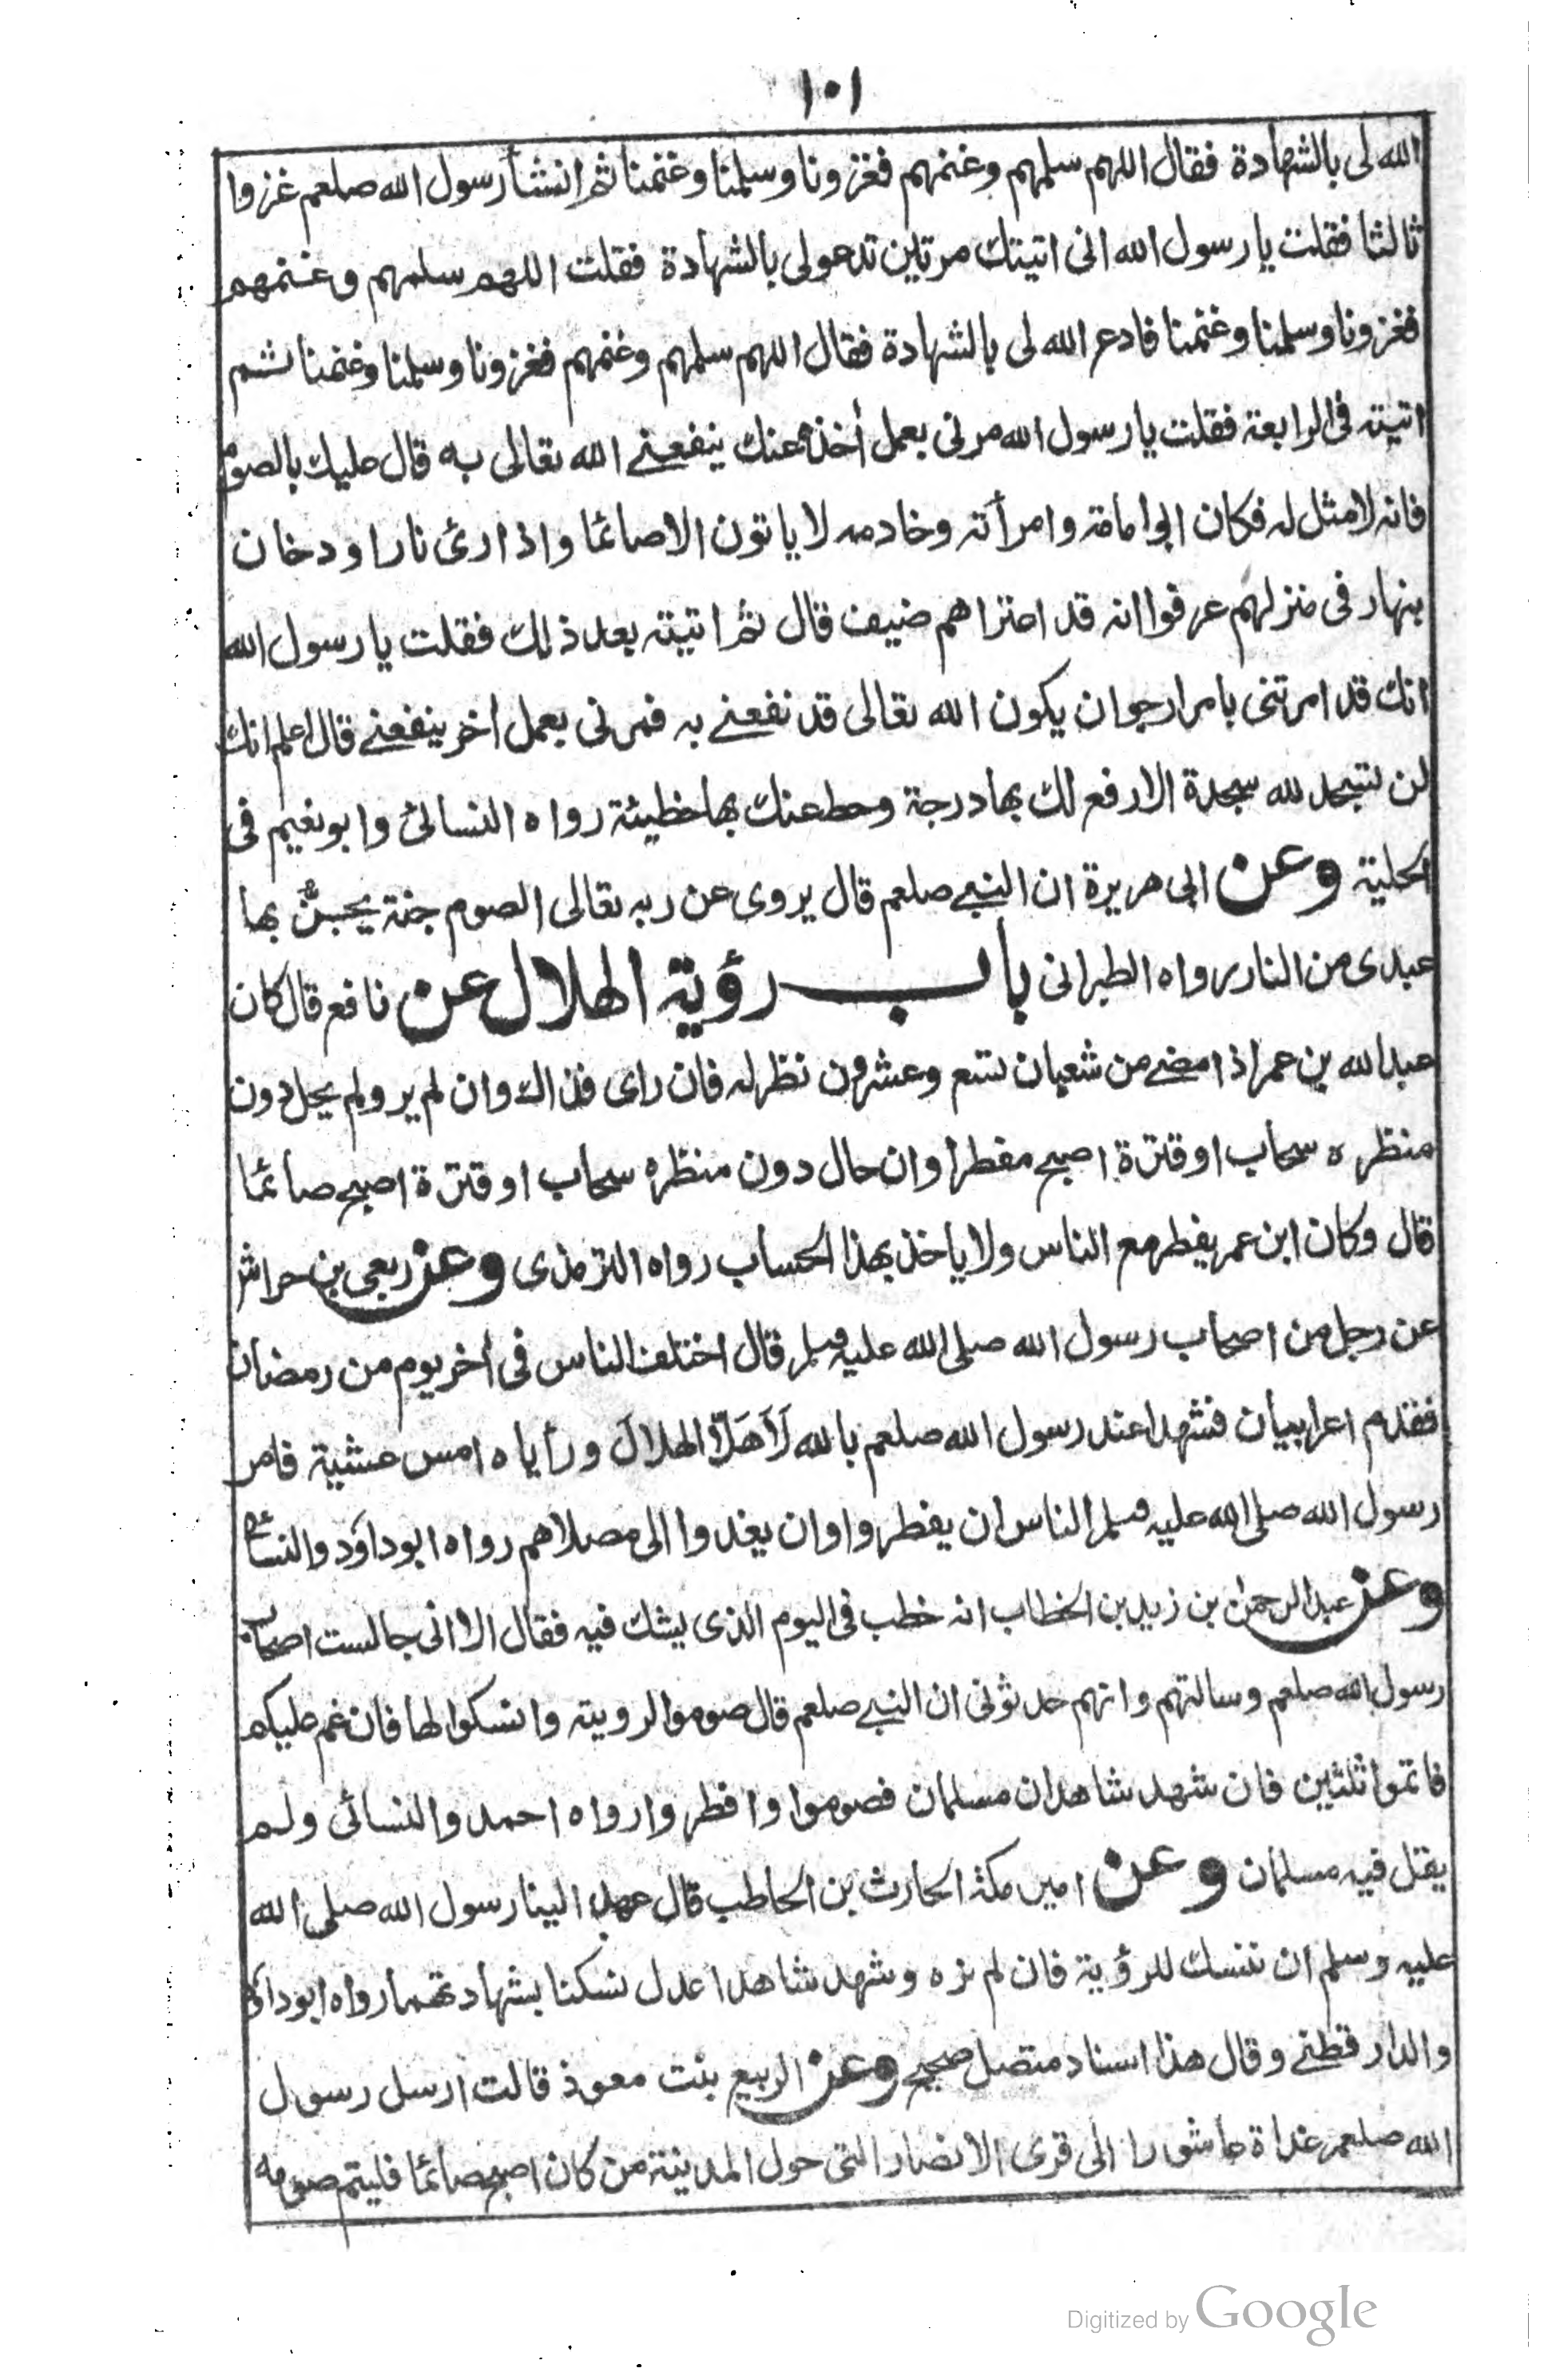 ١٠١
الله لى بالشهادة فقال اللهم سلمهم وغنمهم فغزونا وسلمنا وغنمنا ثم انشأ رسول الله صلعم غزوا
ثالثا فقلت يا رسول الله انى اتيتك مرتين تدعو لى بالشهادة فقلت اللهم سلمهم وغنمهم
فغزونا وسلمنا وغنمنا فادع الله لى بالشهادة فقال اللهم سلمهم وغنمهم فغزونا وسلمنا وغنمنا ثم
اتيته فى الرابعة فقلت يا رسول الله مرنى بعمل أخذه عنك ينفعنے الله تعالى به قال عليك بالصوم
فانه لا مثل له فكان ابو امامة وامرأته وخادمه لا ياتون الا صائما واذا رئ نارا و دخان
بنهار فى منزلهم عرفوا انه قد اعتراهم ضيف قال ثم اتيته بعد ذلك فقلت يا رسول الله
انك قد امرتنى بامر ارجو ان يكون الله تعالى قد نفعنے به فمرنى بعمل أخر ينفعنے قال اعلم انك
لن تسجد لله سجدة الا رفع لك بها درجة وحط عنك بها خطيئة رواه النسائى وابو نعيم فى
الحلية وعن ابى هريرة ان النبے صلعم قال يروى عن ربه تعالى الصوم جنة يجنّ بها
عبدى من النار رواه الطبرانى باب رؤية الهلال عن نافع قال كان
عبد الله بن عمر اذا مضے من شعبان تسع وعشرون نظر له فان راى فذاك وان لم ير ولم يحل دون
منظره سحاب او قترة اصبح مفطرا وان حال دون منظره سحاب او قترة اصبح صائما
قال وكان ابن عمر يفطر مع الناس ولا ياخذ بهذا الحساب رواه الترمذى وعن ربعى بن حراش
عن رجل من اصحاب رسول الله صلى الله عليه وسلم قال اختلف الناس فى أخر يوم من رمضان
فقدم اعرابيان فشهدا عند رسول الله صلعم بالله لَاَهَلَّا الهلالَ ورأياه امس عشية فامر
رسول الله صلى الله عليه وسلم الناس ان يفطروا وان يغدوا الى مصلاهم رواه ابو داؤد والنسائى
وعن عبد الرحمن بن زيد بن الخطاب انه خطب فى اليوم الذى يشك فيه فقال الا انى جالست اصحاب
رسول الله صلعم وسالتهم وانهم حدثونى ان النبے صلعم قال صوموا لرويته وانسكوا لها فان غم عليكم
فاتموا ثلثين فان شهد شاهدان مسلمان فصوموا وافطروا رواه احمد والنسائى ولم
يقل فيه مسلمان وعن امير مكة الحارث بن الحاطب قال عهد الينا رسول الله صلى الله
عليه وسلم ان ننسك للرؤية فان لم نره وشهد شاهدا عدل نسكنا بشهادتهما رواه ابو داؤد
والدارقطنے وقال هذا اسناد متصل صحيح وعن الربيع بنت معوذ قالت ارسل رسول
الله صلعم غداة عاشورا الى قرى الانصار التى حول المدينة من كان اصبح صائما فليتم صومه
Digitized by Google